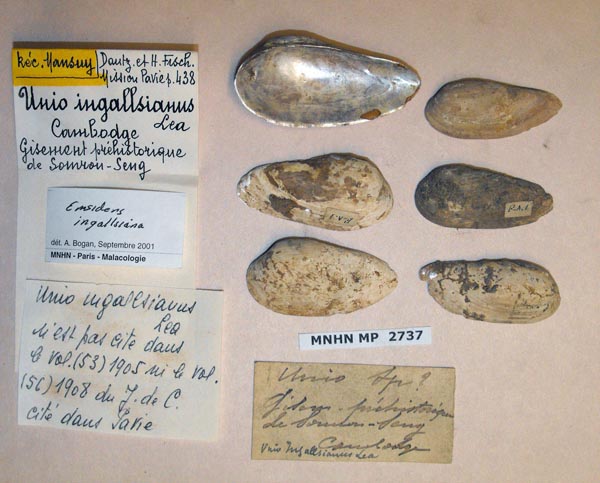 Réc. Mansuy
Dautz. et H. Fisch.
Mission Pavie p. 438
Unio ingallsianus
Lea
Cambodge
Gisement préhistorique
de Somron-Seng
Ensidens
ingallsiana
dét. A. Bogan, Septembre 2001
MNHN - Paris - Malacologie
Unio ingallsianus
Lea
n'est pas cité dans
le vol. (53) 1905 ni le vol.
(56) 1908 du J. de C.
cité dans Pavie
MNHN MP 2737
Unio sp?
préhistorique
de Somron-Seng
Cambodge
Unio Ingallsianus Lea